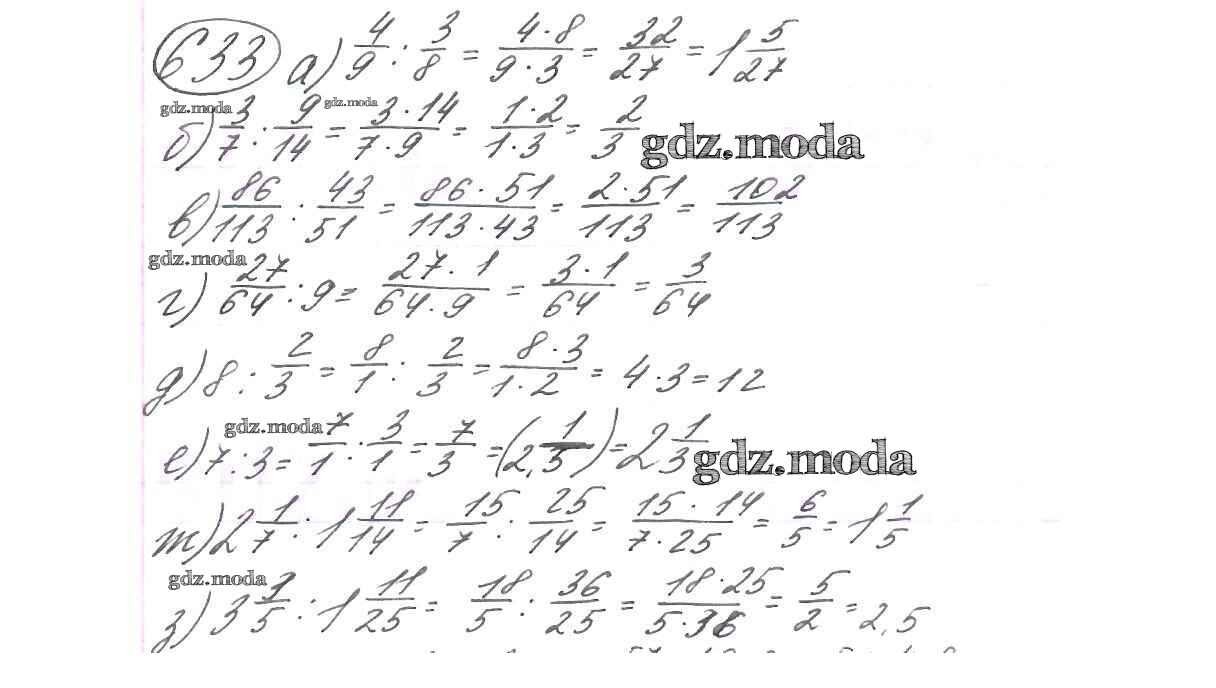 633 а) 4/9 : 3/8 = 4·8/9·3 = 32/27 = 1 5/27
gdz.moda gdz.moda
б) 3/7 : 9/14 = 3·14/7·9 = 1·2/1·3 = 2/3 gdz.moda
в) 86/113 : 43/51 = 86·51/113·43 = 2·51/113 = 102/113
gdz.moda
г) 27/64 : 9 = 27·1/64·9 = 3·1/64 = 3/64
д) 8 : 2/3 = 8/1 : 2/3 = 8·3/1·2 = 4·3 = 12
gdz.moda
е) 7 : 3 = 7/1 : 3/1 = 7/3 = (2, 1/5) = 2 1/3 gdz.moda
ж) 2 1/7 : 1 11/14 = 15/7 : 25/14 = 15·14/7·25 = 6/5 = 1 1/5
gdz.moda
з) 3 3/5 : 1 11/25 = 18/5 : 36/25 = 18·25/5·36 = 5/2 = 2,5